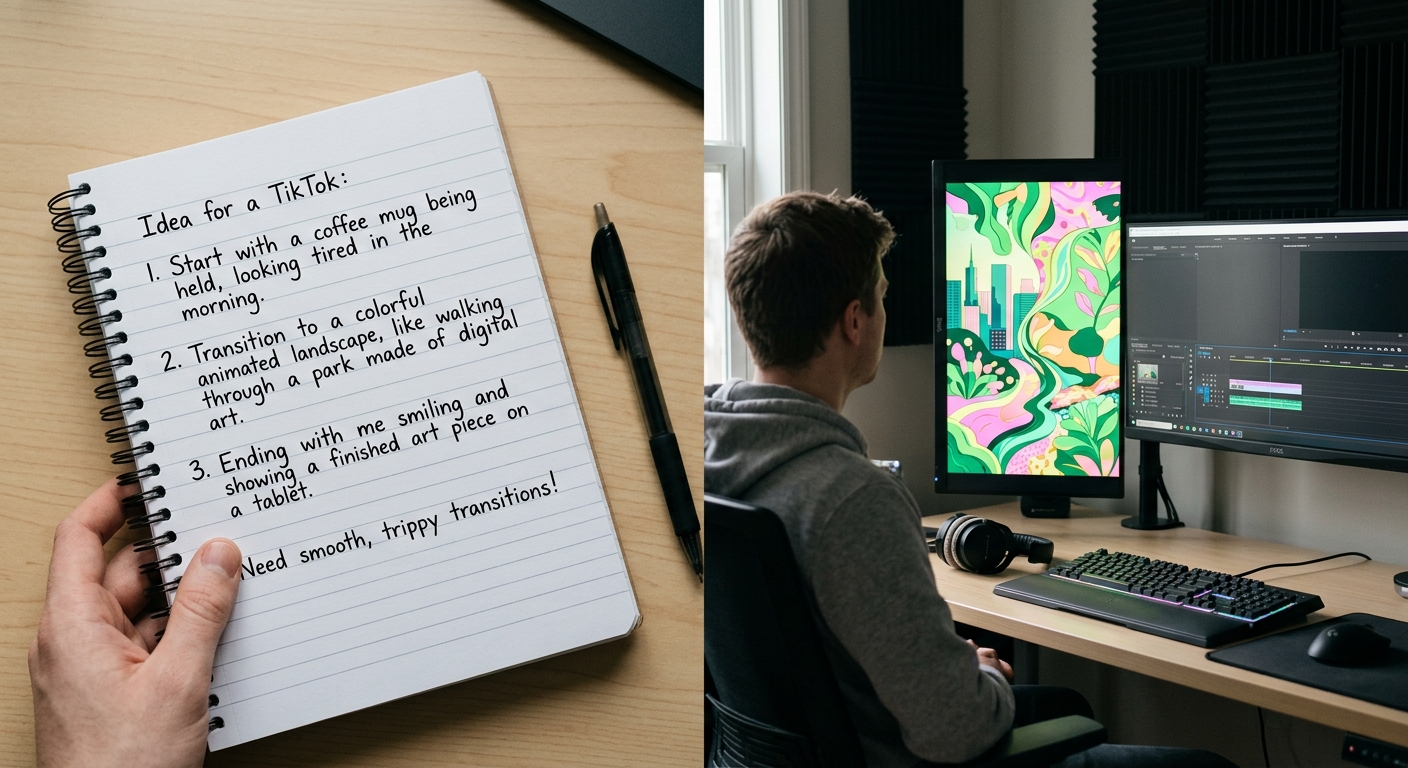 Idea for a TikTok:
1. Start with a coffee mug being
held, looking tired in the
morning.
2. Transition to a colorful
animated landscape, like walking
through a park made of digital
art.
3. Ending with me smiling and
showing a finished art piece on
a tablet.
Need smooth, trippy transitions!